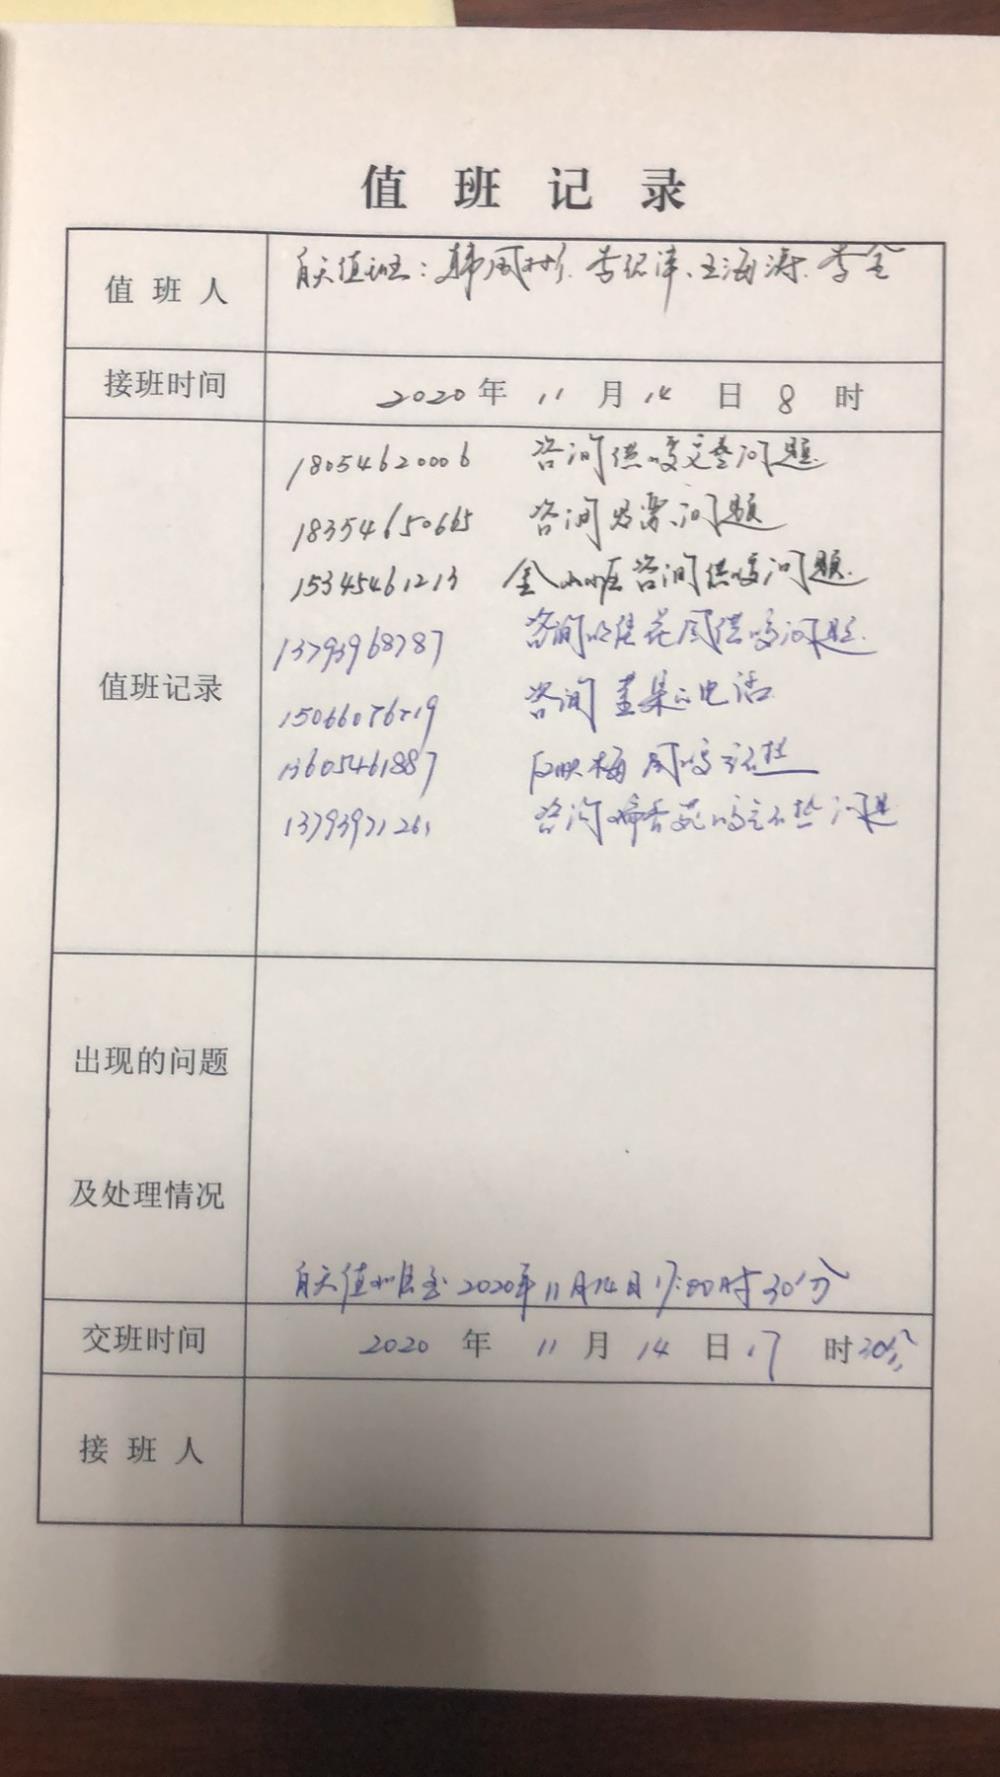 值班记录
值班人
白天值班：韩风彬、李纪泽、王海涛、李
接班时间
2020年11月14日8时
值班记录
18054620006 咨询供暖交费问题
18354650665 咨询发票问题
15345461213 金小区咨询供暖问题.
13793968787 咨询佳花园供暖问题.
1506607 咨询 电话
13605461887 反映梅园暖气不热
1379397126 咨询香苑暖气不热问题
出现的问题
及处理情况
白天值班至2020年11月14日17:00时30分
交班时间
2020年11月14日17时30分
接班人